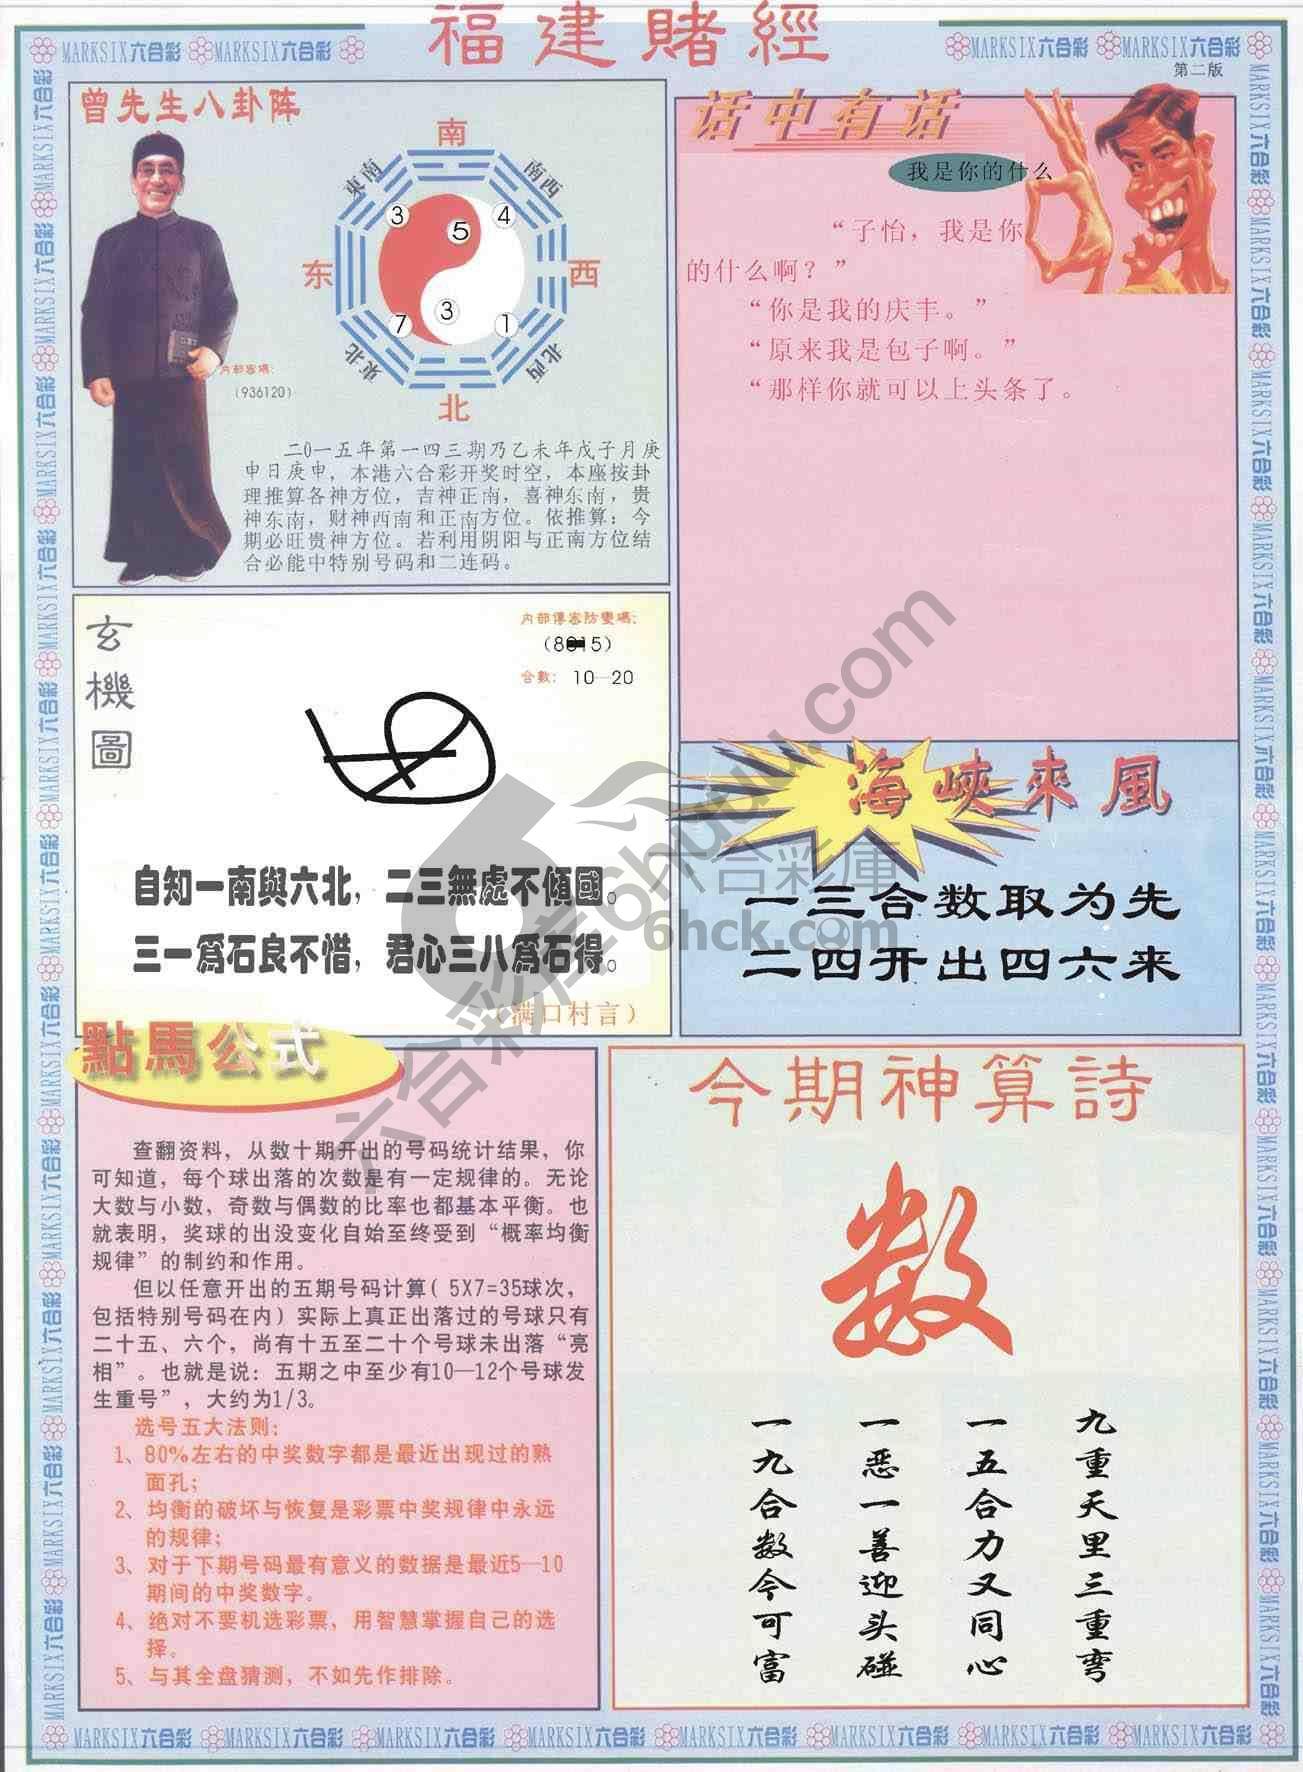 福建賭經
MARKSIX六合彩 MARKSIX六合彩 MARKSIX六合彩 MARKSIX六合彩
第二版
曾先生八卦阵
南
東南
南西
3
5
4
东
西
7
3
1
東北
北西
北
内部密碼:
(936120)
二0一五年第一四三期乃乙未年戊子月庚
申日庚申，本港六合彩开奖时空，本座按卦
理推算各神方位，吉神正南，喜神东南，贵
神东南，财神西南和正南方位。依推算：今
期必旺贵神方位。若利用阴阳与正南方位结
合必能中特别号码和二连码。
话中有话
我是你的什么
“子怡，我是你
的什么啊？”
“你是我的庆丰。”
“原来我是包子啊。”
“那样你就可以上头条了。
玄機圖
内部傳密防變碼:
合數: 10—20
自知一南與六北，二三無處不傾國。
三一為石良不惜，君心三八為石得。
(满口村言)
海峽來風
一三合数取为先
二四开出四六来
點馬公式
查翻资料，从数十期开出的号码统计结果，你
可知道，每个球出落的次数是有一定规律的。无论
大数与小数，奇数与偶数的比率也都基本平衡。也
就表明，奖球的出没变化自始至终受到“概率均衡
规律”的制约和作用。
但以任意开出的五期号码计算( 5X7=35球次，
包括特别号码在内) 实际上真正出落过的号球只有
二十五、六个，尚有十五至二十个号球未出落“亮
相”。也就是说：五期之中至少有10—12个号球发
生重号”，大约为1/3。
选号五大法则:
1、80%左右的中奖数字都是最近出现过的熟
面孔;
2、均衡的破坏与恢复是彩票中奖规律中永远
的规律;
3、对于下期号码最有意义的数据是最近5—10
期间的中奖数字。
4、绝对不要机选彩票，用智慧掌握自己的选
择。
5、与其全盘猜测，不如先作排除。
今期神算詩
数
九重天里三重弯
一五合力又同心
一恶一善迎头碰
一九合数今可富
六合彩庫
6hck.com
六合彩库6huquu.com
MARKSIX六合彩 MARKSIX六合彩 MARKSIX六合彩 MARKSIX六合彩 MARKSIX六合彩 MARKSIX六合彩 MARKSIX六合彩 MARKSIX六合彩